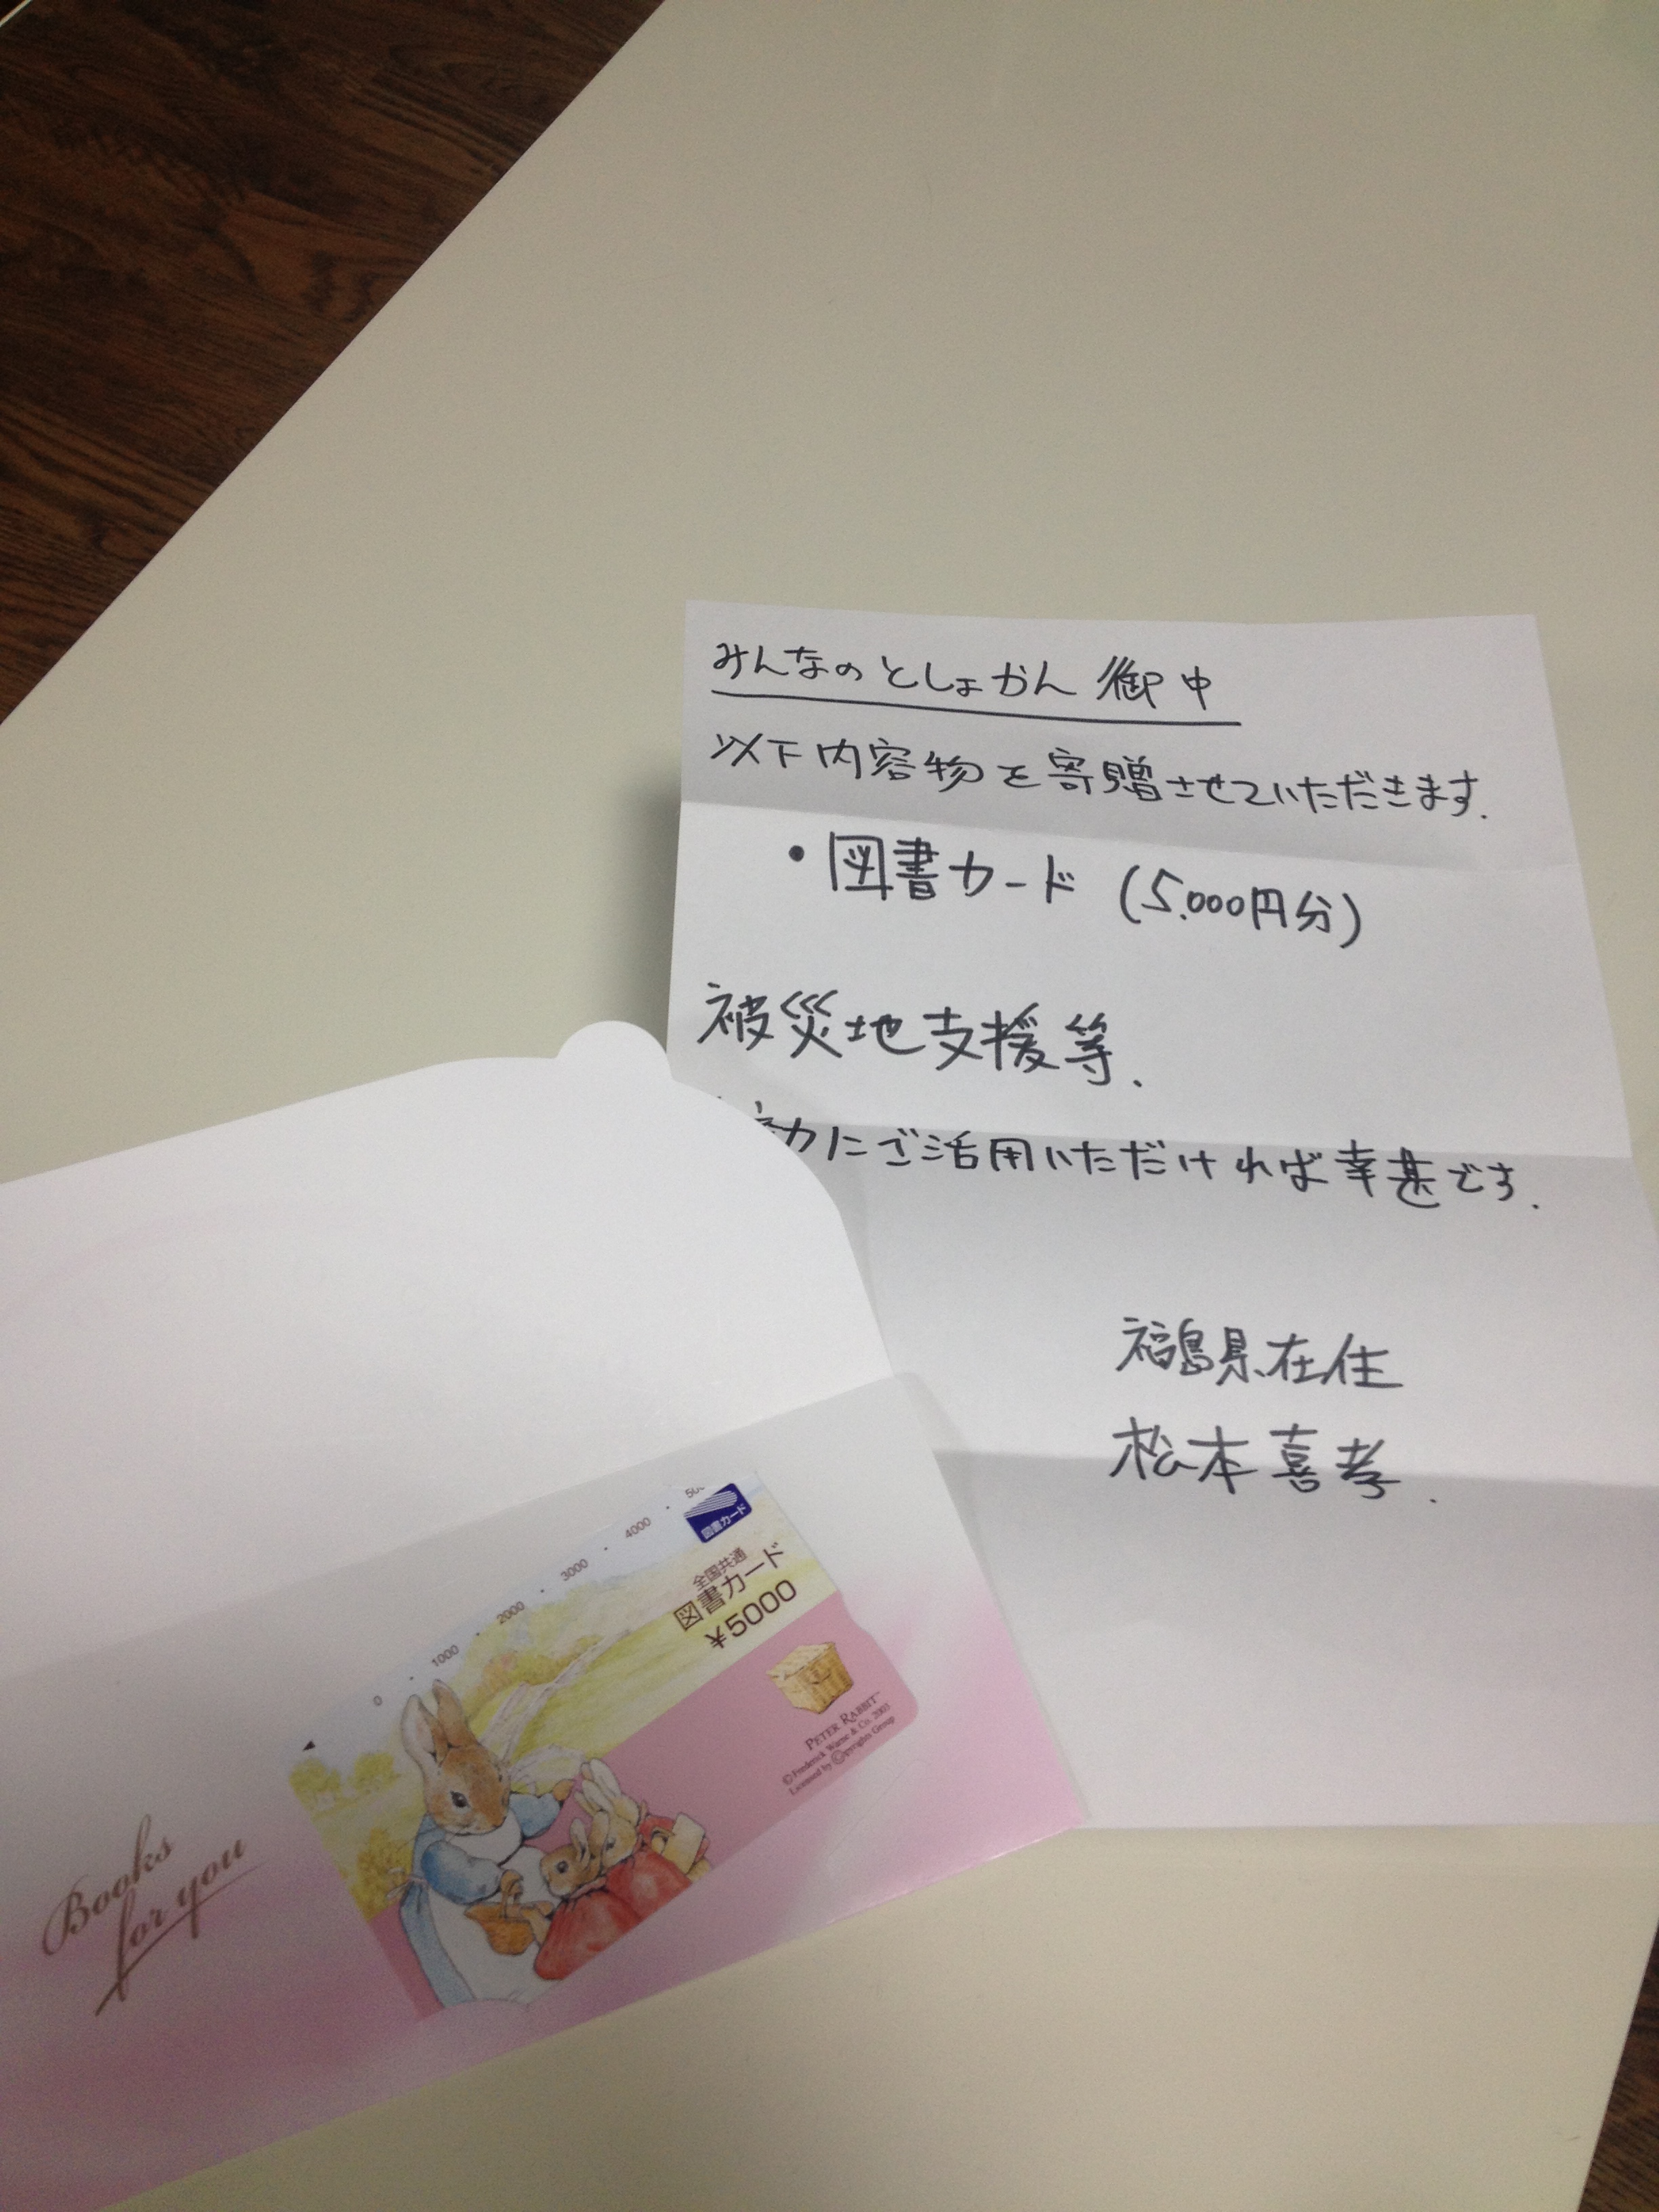 みんなのとしょかん 御中
以下内容物を寄贈させていただきます.
・図書カード (5,000円分)
被災地支援等、
力にご活用いただければ幸甚です.
福島県在住
松本喜孝.
0 ・ 1000 ・ 2000 ・ 3000 ・ 4000 ・
図書カード
全国共通
図書カード
¥5000
PETER RABBIT™
©Frederick Warne & Co. 2003
Licensed by ©opyrights Group
Books
for you